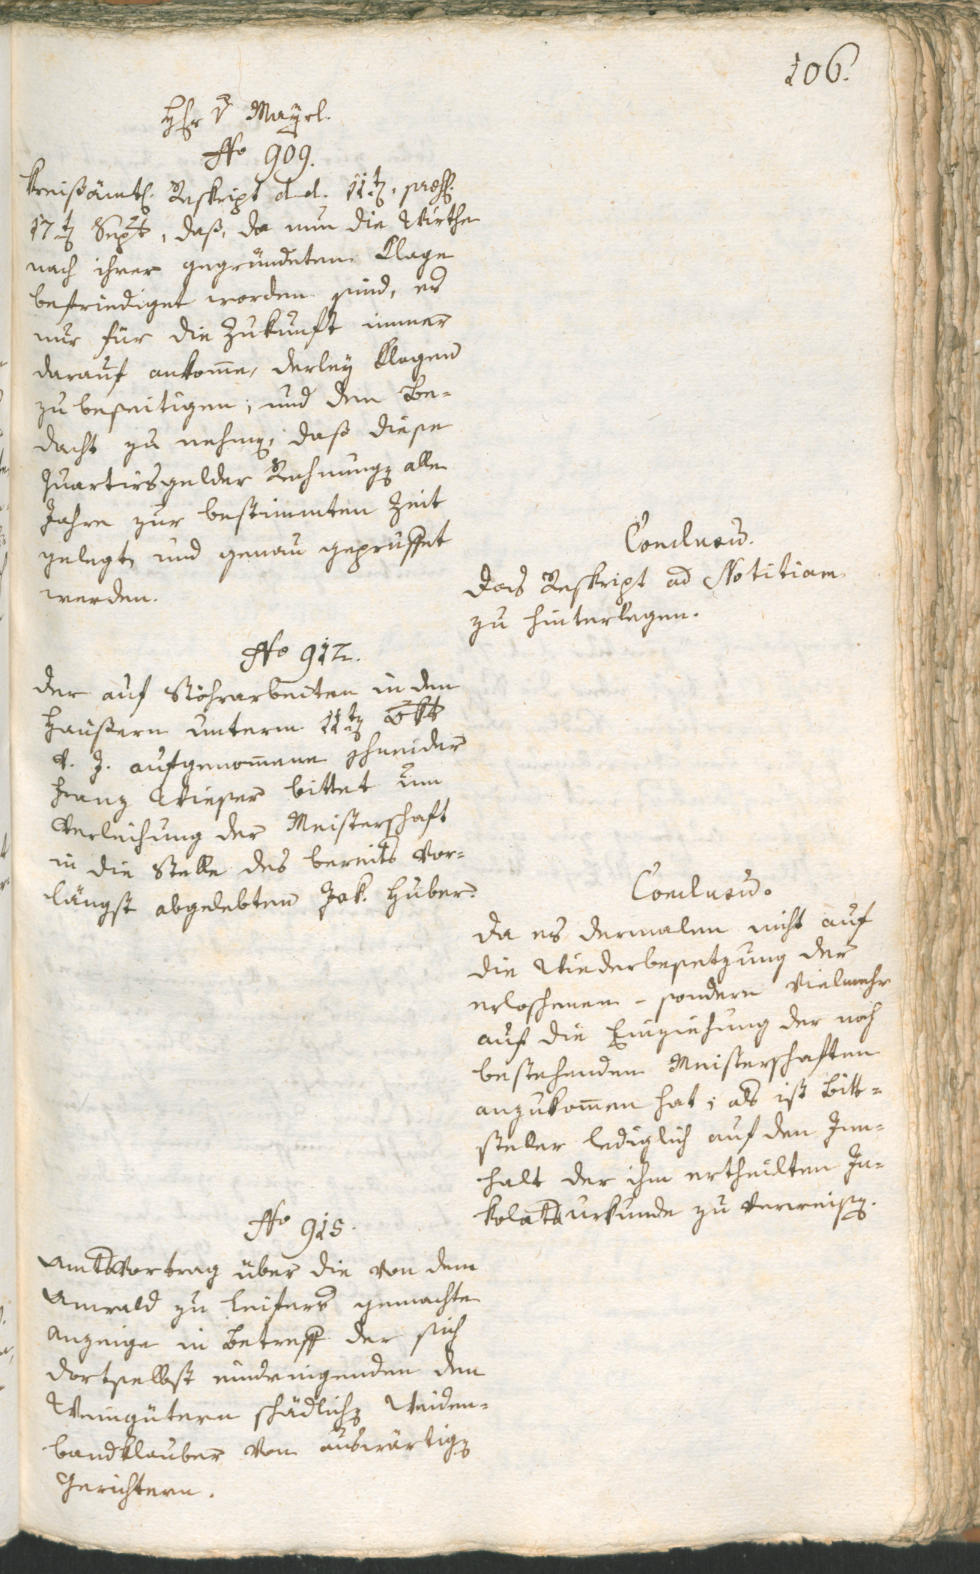 106.
Hr v Mayrl.
No 909.
Kreißämtl. Reskript d. d. 11t, præs.
17t Sept, daß, da nun die Wirthe
nach ihrer gegründeten Klage
befriediget worden sind, es
nur für die Zukunft immer
darauf ankome, derley Klagen
zu beseitigen; und den Be-
dacht zu nehmen, daß diese
Quartiersgelder Rechnungen alle
Jahre zur bestimmten Zeit
gelegt, und genau geprüffet
werden.
Conclusu.
Das Reskript ad Notitiam
zu hinterlegen.
No 912.
Der auf Stöhrarbeiten in den
Häußern unterm 11t Okt
v. J. aufgenomene Schneider
Franz Wieser bittet um
Verleihung der Meisterschaft
in die Stelle des bereits vor-
längst abgelebten Jak. Huber.
Conclusu.
Da es dermalen nicht auf
die Wiederbesetzung der
erloschenen – sondern vielmehr
auf die Einziehung der noch
bestehenden Meisterschaften
anzukomen hat; als ist Bitt-
steller lediglich auf den Inn-
halt der ihm ertheilten In-
kolatsurkunde zu verweisen.
No 915.
Amtsvortrag über die von dem
Anwald zu Leifers gemachte
Anzeige in Betreff der sich
dortselbst eindringenden den
Weingütern schädlichen Weiden-
bandklauber von auswärtigen
Gerichtern.